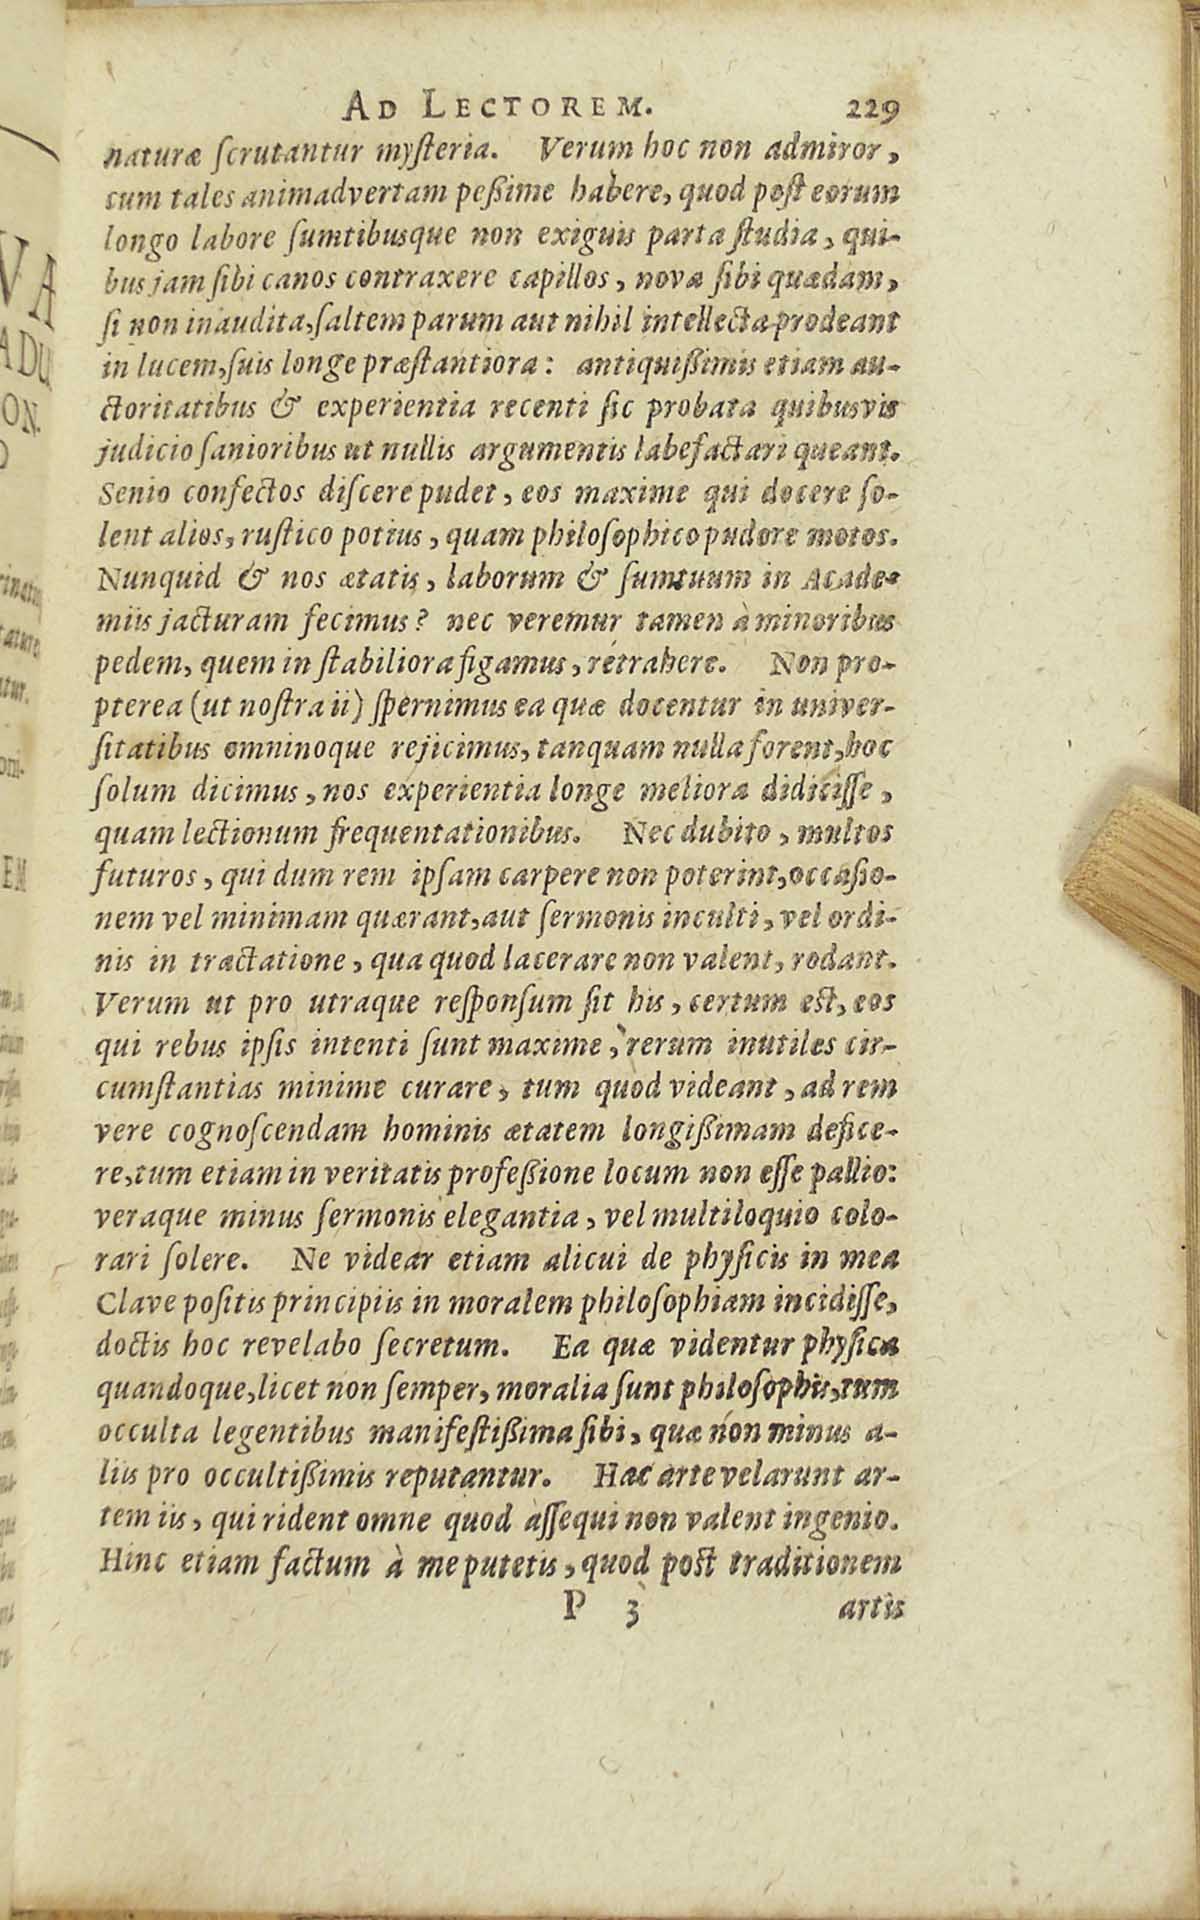 AD LECTOREM. 229
naturæ ſcrutantur myſteria. Verum hoc non admiror,
cum tales animadvertam peßime habere, quod poſt eorum
longo labore ſumtibusque non exiguis parta ſtudia, qui-
bus jam ſibi canos contraxere capillos, nova ſibi quædam,
ſi non inaudita, ſaltem parum aut nihil intellecta prodeant
in lucem, ſuis longe præſtantiora: antiquißimis etiam au-
ctoritatibus & experientia recenti ſic probata quibusvis
judicio ſanioribus ut nullis argumentis labefactari queant.
Senio confectos diſcere pudet, eos maxime qui docere ſo-
lent alios, ruſtico potius, quam philoſophico pudore motos.
Nunquid & nos ætatis, laborum & ſumtuum in Acade-
miis jacturam fecimus? nec veremur tamen à minoribus
pedem, quem in ſtabiliora figamus, retrahere. Non pro-
pterea (ut noſtra ii) ſpernimus ea quæ docentur in univer-
ſitatibus omninoque rejicimus, tanquam nulla forent, hoc
ſolum dicimus, nos experientia longe meliora didiciſſe,
quam lectionum frequentationibus. Nec dubito, multos
futuros, qui dum rem ipſam carpere non poterint, occaſio-
nem vel minimam quærant, aut ſermonis inculti, vel ordi-
nis in tractatione, qua quod lacerare non valent, rodant.
Verum ut pro utraque reſponſum ſit his, certum est, eos
qui rebus ipſis intenti ſunt maxime, rerum inutiles cir-
cumſtantias minime curare, tum quod videant, ad rem
vere cognoſcendam hominis ætatem longißimam defice-
re, tum etiam in veritatis profeßione locum non eſſe pallio:
veraque minus ſermonis elegantia, vel multiloquio colo-
rari ſolere. Ne videar etiam alicui de phyſicis in mea
Clave poſitis principiis in moralem philoſophiam incidiſſe,
doctis hoc revelabo ſecretum. Ea quæ videntur phyſica
quandoque, licet non ſemper, moralia ſunt philoſophis, tum
occulta legentibus manifeſtißima ſibi, quæ non minus a-
liis pro occultißimis reputantur. Hac arte velarunt ar-
tem iis, qui rident omne quod aſſequi non valent ingenio.
Hinc etiam factum à me putetis, quod post traditionem
P 3 artis